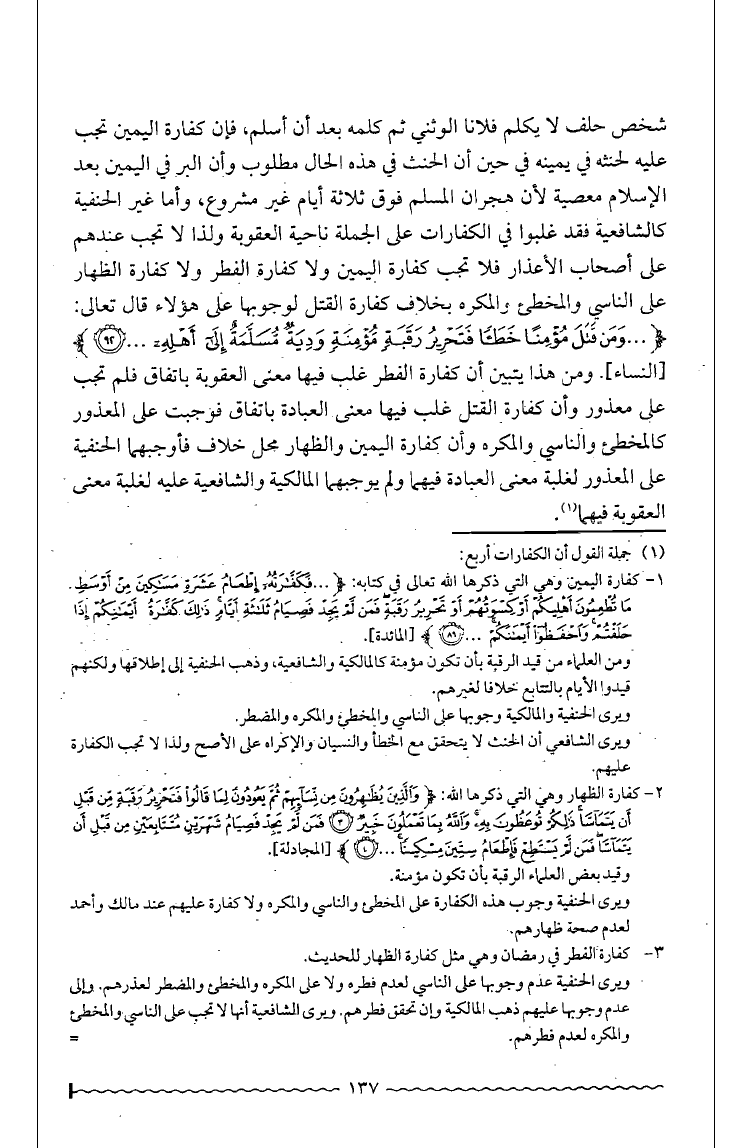 شخص حلف لا يكلم فلانا الوثني ثم كلمه بعد أن أسلم، فإن كفارة اليمين تجب
عليه لحنثه في يمينه في حين أن الحنث في هذه الحال مطلوب وأن البر في اليمين بعد
الإسلام معصية لأن هجران المسلم فوق ثلاثة أيام غير مشروع، وأما غير الحنفية
كالشافعية فقد غلبوا في الكفارات على الجملة ناحية العقوبة ولذا لا تجب عندهم
على أصحاب الأعذار فلا تجب كفارة اليمين ولا كفارة الفطر ولا كفارة الظهار
على الناسي والمخطئ والمكره بخلاف كفارة القتل لوجوبها على هؤلاء قال تعالى:
﴿ ...وَمَن قَتَلَ مُؤْمِنًا خَطَـًٔا فَتَحْرِيرُ رَقَبَةٍ مُّؤْمِنَةٍ وَدِيَةٌ مُّسَلَّمَةٌ إِلَىٰٓ أَهْلِهِۦ ... ٩٢ ﴾
[النساء]. ومن هذا يتبين أن كفارة الفطر غلب فيها معنى العقوبة باتفاق فلم تجب
على معذور وأن كفارة القتل غلب فيها معنى العبادة باتفاق فوجبت على المعذور
كالمخطئ والناسي والمكره وأن كفارة اليمين والظهار محل خلاف فأوجبهما الحنفية
على المعذور لغلبة معنى العبادة فيهما ولم يوجبهما المالكية والشافعية عليه لغلبة معنى
العقوبة فيهما(١).
(١) جملة القول أن الكفارات أربع:
١- كفارة اليمين وهي التي ذكرها الله تعالى في كتابه: ﴿ ...فَكَفَّـٰرَتُهُۥٓ إِطْعَامُ عَشَرَةِ مَسَـٰكِينَ مِنْ أَوْسَطِ
مَا تُطْعِمُونَ أَهْلِيكُمْ أَوْ كِسْوَتُهُمْ أَوْ تَحْرِيرُ رَقَبَةٍ ۖ فَمَن لَّمْ يَجِدْ فَصِيَامُ ثَلَـٰثَةِ أَيَّامٍ ۚ ذَٰلِكَ كَفَّـٰرَةُ أَيْمَـٰنِكُمْ إِذَا
حَلَفْتُمْ ۚ وَٱحْفَظُوٓا۟ أَيْمَـٰنَكُمْ ۚ ... ٨٩ ﴾ [المائدة].
ومن العلماء من قيد الرقبة بأن تكون مؤمنة كالمالكية والشافعية، وذهب الحنفية إلى إطلاقها ولكنهم
قيدوا الأيام بالتتابع خلافا لغيرهم.
ويرى الحنفية والمالكية وجوبها على الناسي والمخطئ والمكره والمضطر.
ويرى الشافعي أن الحنث لا يتحقق مع الخطأ والنسيان والإكراه على الأصح ولذا لا تجب الكفارة
عليهم.
٢- كفارة الظهار وهي التي ذكرها الله: ﴿ وَٱلَّذِينَ يُظَـٰهِرُونَ مِن نِّسَآئِهِمْ ثُمَّ يَعُودُونَ لِمَا قَالُوا۟ فَتَحْرِيرُ رَقَبَةٍ مِّن قَبْلِ
أَن يَتَمَآسَّا ۚ ذَٰلِكُمْ تُوعَظُونَ بِهِۦ ۚ وَٱللَّهُ بِمَا تَعْمَلُونَ خَبِيرٌ ٣ فَمَن لَّمْ يَجِدْ فَصِيَامُ شَهْرَيْنِ مُتَتَابِعَيْنِ مِن قَبْلِ أَن
يَتَمَآسَّا ۖ فَمَن لَّمْ يَسْتَطِعْ فَإِطْعَامُ سِتِّينَ مِسْكِينًا ۚ ... ٤ ﴾ [المجادلة].
وقيد بعض العلماء الرقبة بأن تكون مؤمنة.
ويرى الحنفية وجوب هذه الكفارة على المخطئ والناسي والمكره ولا كفارة عليهم عند مالك وأحمد
لعدم صحة ظهارهم.
٣- كفارة الفطر في رمضان وهي مثل كفارة الظهار للحديث.
ويرى الحنفية عدم وجوبها على الناسي لعدم فطره ولا على المكره والمخطئ والمضطر لعذرهم. وإلى
عدم وجوبها عليهم ذهب المالكية وإن تحقق فطرهم. ويرى الشافعية أنها لا تجب على الناسي والمخطئ
والمكره لعدم فطرهم. =
١٣٧